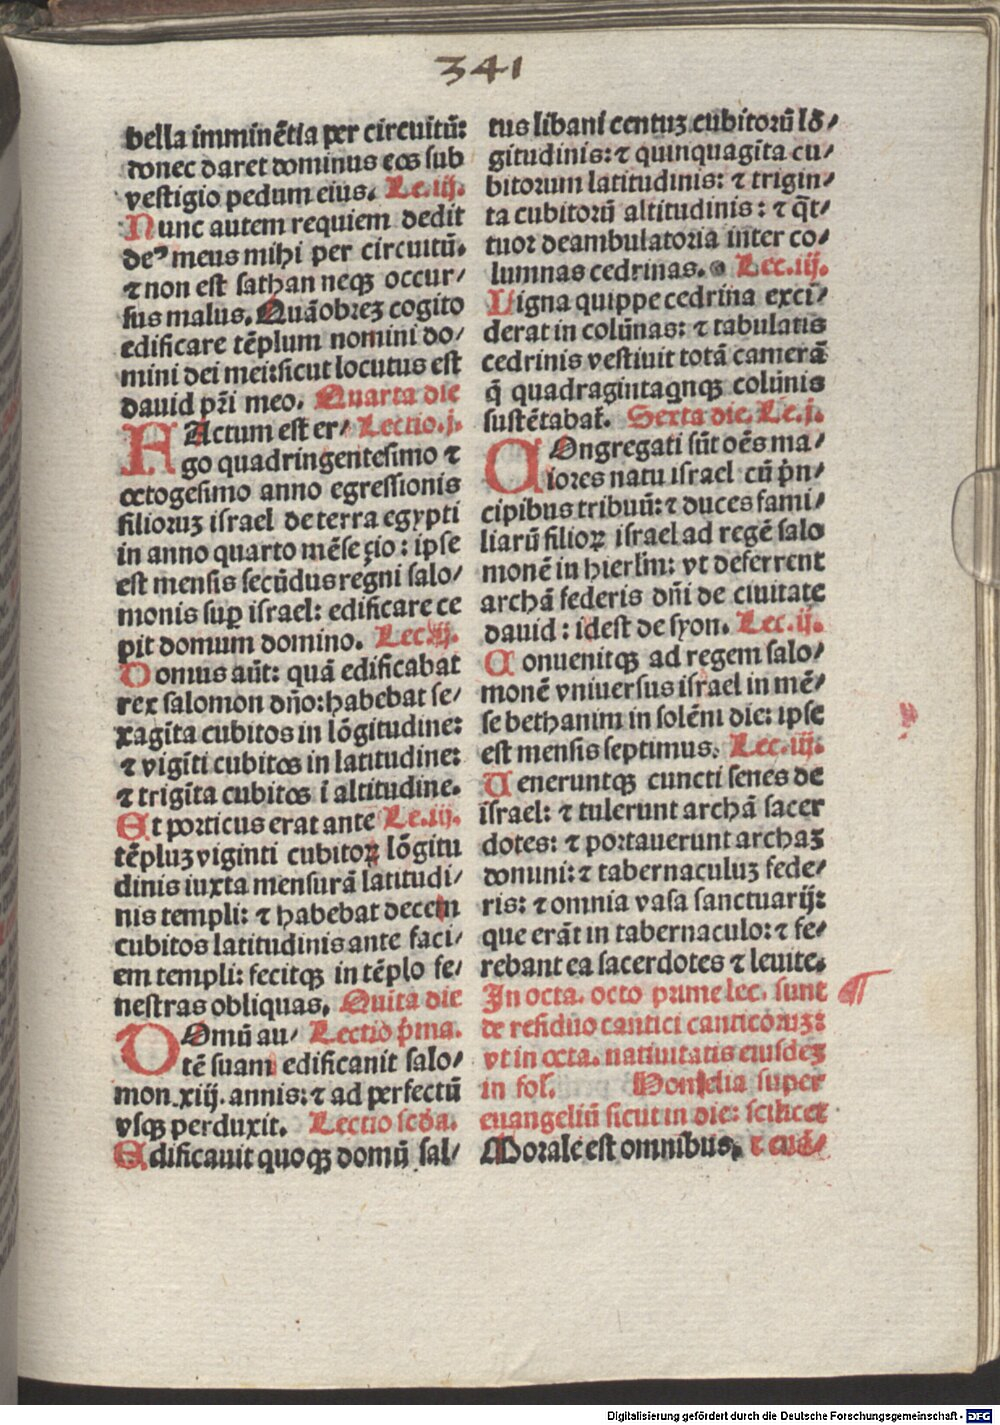 341
bella imminētia per circuitū:
donec daret dominus eos sub
vestigio pedum eius. Le.iij.
Nunc autem requiem dedit
deꝰ meus mihi per circuitū.
⁊ non est sathan neqꝫ occur/
sus malus. Quāobreꝫ cogito
edificare tēplum nomini do/
mini dei mei: sicut locutus est
dauid pr̄i meo. Quarta die
FActum est er/ Lectio.j.
go quadringentesimo ⁊
octogesimo anno egressionis
filioruꝫ israel de terra egypti
in anno quarto mēse çio: ipse
est mensis secūdus regni salo/
monis suꝑ israel: edificare ce
pit domum domino. Lec.ij.
Domus aūt: quā edificabat
rex salomon dn̄o: habebat se/
xagīta cubitos in lōgitudine:
⁊ vigīti cubitos in latitudine:
⁊ trigīta cubitos ī altitudine.
Et porticus erat ante Le.iij.
tēpluꝫ viginti cubitoꝝ lōgitu
dinis iuxta mensurā latitudi/
nis templi: ⁊ habebat decem
cubitos latitudinis ante faci/
em templi: fecitqꝫ in tēplo fe/
nestras obliquas. Quita die
DOmū au/ Lectio p̄ma.
tē suam edificauit salo/
mon.xiij. annis: ⁊ ad perfectū
vsqꝫ perduxit. Lectio scd̄a.
Edificauit quoqꝫ domū sal/
tus libani centuꝫ cubitorū lō/
gitudinis: ⁊ quinquagīta cu/
bitorum latitudinis: ⁊ trigin/
ta cubitorū altitudinis: ⁊ q̄t/
tuor deambulatoria inter co/
lumnas cedrinas. Lec.iij.
Ligna quippe cedrina exci/
derat in colūnas: ⁊ tabulatis
cedrinis vestiuit totā camerā
q̄ quadragintaqnqꝫ colūnis
sustētabat᷑. Sexta die. Le.j.
COngregati sūt oēs ma/
iores natu israel cū p̄n/
cipibus tribuū: ⁊ duces fami/
liarū filioꝝ israel ad regē salo
monē in hierlm̄: vt deferrent
archā federis dn̄i de ciuitate
dauid: idest de syon. Lec.ij.
Conuenitqꝫ ad regem salo/
monē vniuersus israel in mē/
se bethanim in solēni die: ipse
est mensis septimus. Lec.iij.
Ueneruntqꝫ cuncti senes de
israel: ⁊ tulerunt archā sacer
dotes: ⁊ portauerunt archaꝫ
domini: ⁊ tabernaculuꝫ fede/
ris: ⁊ omnia vasa sanctuarij:
que erāt in tabernaculo: ⁊ fe/
rebant ea sacerdotes ⁊ leuite.
In octa. octo prime lec. sunt
de residuo cantici canticoruꝫ:
vt in octa. natiuitatis eiusdeꝫ
in fol. Homelia super
euangeliū sicut in die: scilicet
Morale est omnibus. ⁊ euā/
Digitalisierung gefördert durch die Deutsche Forschungsgemeinschaft - DFG